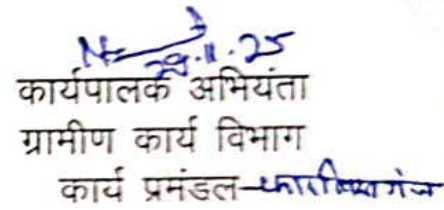 29.11.25
कार्यपालक अभियंता
ग्रामीण कार्य विभाग
कार्य प्रमंडल-फारबिसगंज